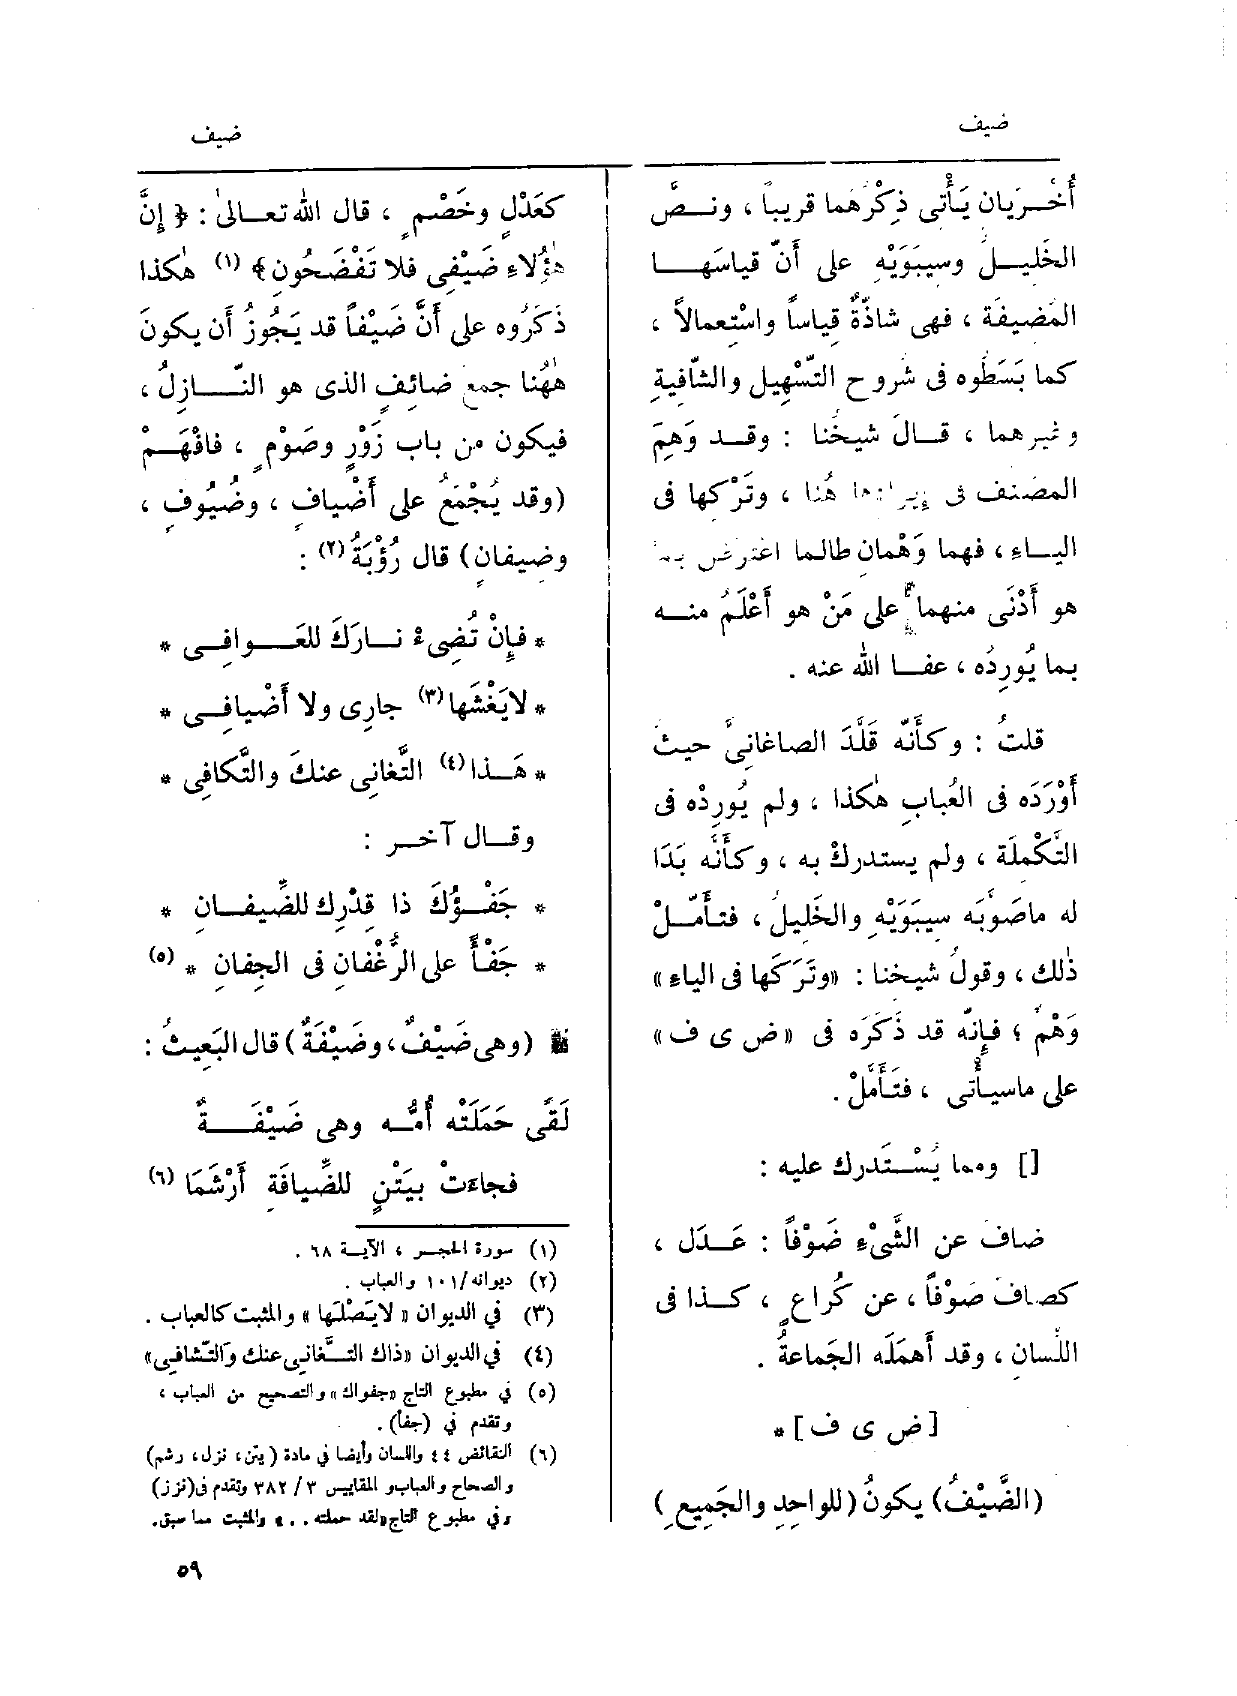 ضيف
ضيف
أُخْـرَيان يَأْتى ذِكْرُهما قريباً ، ونـصُّ
الخَلِيـلُ وسِيبَوَيْهِ على أَنّ قياسَهـا
المَضِيفَة ، فهى شاذّةٌ قِياساً واسْتِعمالاً ،
كما بَسَطُوه فى شروح التَّسْهِيل والشّافيةِ
وغيرهما ، قـالَ شيخُنا : وقـد وَهِمَ
المصنف فى هُنا ، وتَرْكِها فى
اليـاءِ ، فهما وَهْمان طالما اعترض بـ
هو أَدْنَى منهما على مَنْ هو أَعْلَمُ منـه
بما يُورِدُه ، عفـا الله عنه .
قلتُ : وكأَنّه قَلَّدَ الصاغانىَّ حيث
أَوْرَدَه فى العُبابِ هٰكذا ، ولم يُورِدْه فى
التَّكْمِلَة ، ولم يستدركْ به ، وكأَنَّه بَدَا
له ماصَوَّبَه سِيبَوَيْهِ والخَلِيلُ ، فتأَمّـلْ
ذٰلك ، وقولُ شيخنا : «وتَرَكَها فى الياءِ»
وَهْمٌ ؛ فإِنّه قد ذَكَرَه فى «ض ى ف»
على ماسيأْتى ، فتَأَمَّلْ .
[] ومما يُسْـتَدرك عليه :
ضاف عن الشَّىْءِ ضَوْفاً : عَـدَل ،
كصافَ صَوْفاً ، عن كُراعٍ ، كـذا فى
اللِّسان ، وقد أَهمَلَه الجَماعةُ .
[ض ى ف] *
(الضَّيْفُ) يكونُ (للواحِدِ والجَمِيعِ)
كعَدْلٍ وخَصْمٍ ، قال الله تعـالىٰ : ﴿ إِنَّ
هٰؤُلاءِ ضَيْفِى فلا تَفْضَحُونِ﴾ (١) هٰكذا
ذَكَرُوه على أَنَّ ضَيْفاً قد يَجُوزُ أَن يكونَ
هٰهُنا جمع ضائفٍ الذى هو النّـازِلُ ،
فيكون من باب زَوْرٍ وصَوْمٍ ، فافْهَـمْ
(وقد يُجْمَعُ على أَضْيافٍ ، وضُيُوفٍ ،
وضِيفان) قال رُؤْبَةُ (٢) :
* فإِنْ تُضِىءْ نـارَكَ للعَـوافِـى *
* لايَغْشَها (٣) جارِى ولا أَضْيافِـى *
* هَـذا (٤) التَّغانِى عنكَ والتَّكافِى *
وقـال آخـر :
* جَفْـؤُكَ ذا قِدْرِك للضِّيفـان *
* جَفْأً على الرُّغْفانِ فى الجِفانِ * (٥)
(وهى ضَيْفٌ ، وضَيْفَةٌ) قال البَعِيثُ :
لَقًى حَمَلَتْه أُمُّـه وهى ضَيْفَـةٌ
فجاءَتْ بيَتْنٍ للضِّيافَةِ أَرْشَمَا (٦)
(١) سورة الحجـر ، الآيـة ٦٨ .
(٢) ديوانه/١٠١ والعباب .
(٣) في الديوان « لايَصْلَها » والمثبت كالعباب .
(٤) في الديوان «ذاك التَّغانِى عنك والتَّشافِى»
(٥) في مطبوع التاج «جفواك» والتصحيح من العباب ،
وتقدم في (جفأ) .
(٦) النقائض ٤٤ واللسان وأيضا في مادة (يتن ، نزل ، رشم)
والصحاح والعباب والمقاييس ٣/٣٨٢ وتقدم فى (نزز)
وفي مطبوع التاج «لقد حملته ...» والمثبت مما سبق .
٥٩